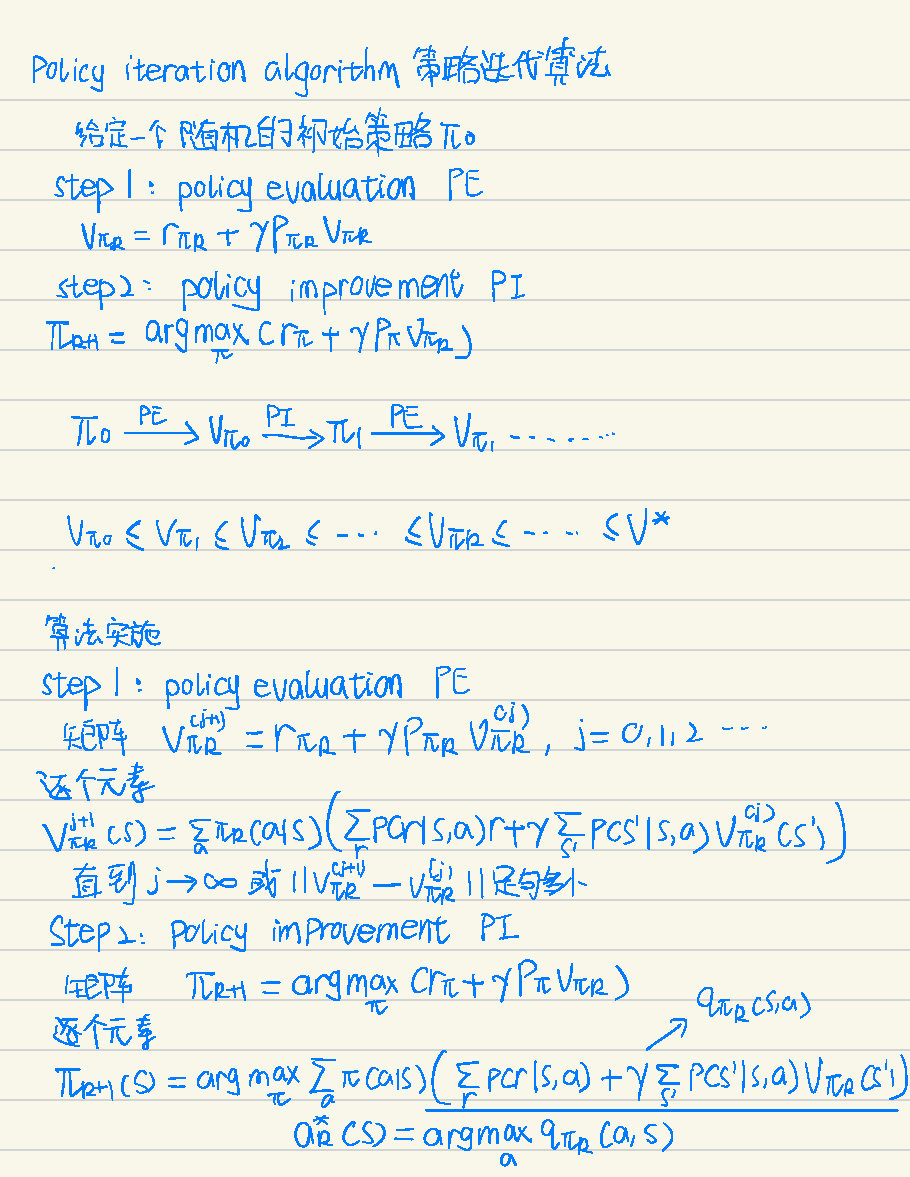 Policy iteration algorithm 策略迭代算法
给定一个随机的初始策略 π₀
step 1: policy evaluation PE
V_{πk} = r_{πk} + γP_{πk} V_{πk}
step 2: policy improvement PI
π_{k+1} = argmax_π (r_π + γP_π V_{πk})
π₀ —PE→ V_{π₀} —PI→ π₁ —PE→ V_{π₁} ········
V_{π₀} ≤ V_{π₁} ≤ V_{π₂} ≤ ···· ≤ V_{πk} ≤ ···· ≤ V*
算法实施
step 1: policy evaluation PE
矩阵 V_{πk}^{(j+1)} = r_{πk} + γP_{πk} V_{πk}^{(j)}, j = 0,1,2 ···
逐个元素
V_{πk}^{j+1}(s) = Σ_a πk(a|s)(Σ_r P(r|s,a)r + γ Σ_{s'} P(s'|s,a) V_{πk}^{(j)}(s'))
直到 j → ∞ 或 ||V_{πk}^{(j+1)} − V_{πk}^{(j)}|| 足够小
Step 2: Policy improvement PI
矩阵 π_{k+1} = argmax_π (r_π + γP_π V_{πk})
q_{πk}(s,a)
逐个元素
π_{k+1}(s) = arg max_π Σ_a π(a|s)(Σ_r p(r|s,a) + γ Σ_{s'} P(s'|s,a) V_{πk}(s'))
a*_k(s) = argmax_a q_{πk}(a,s)